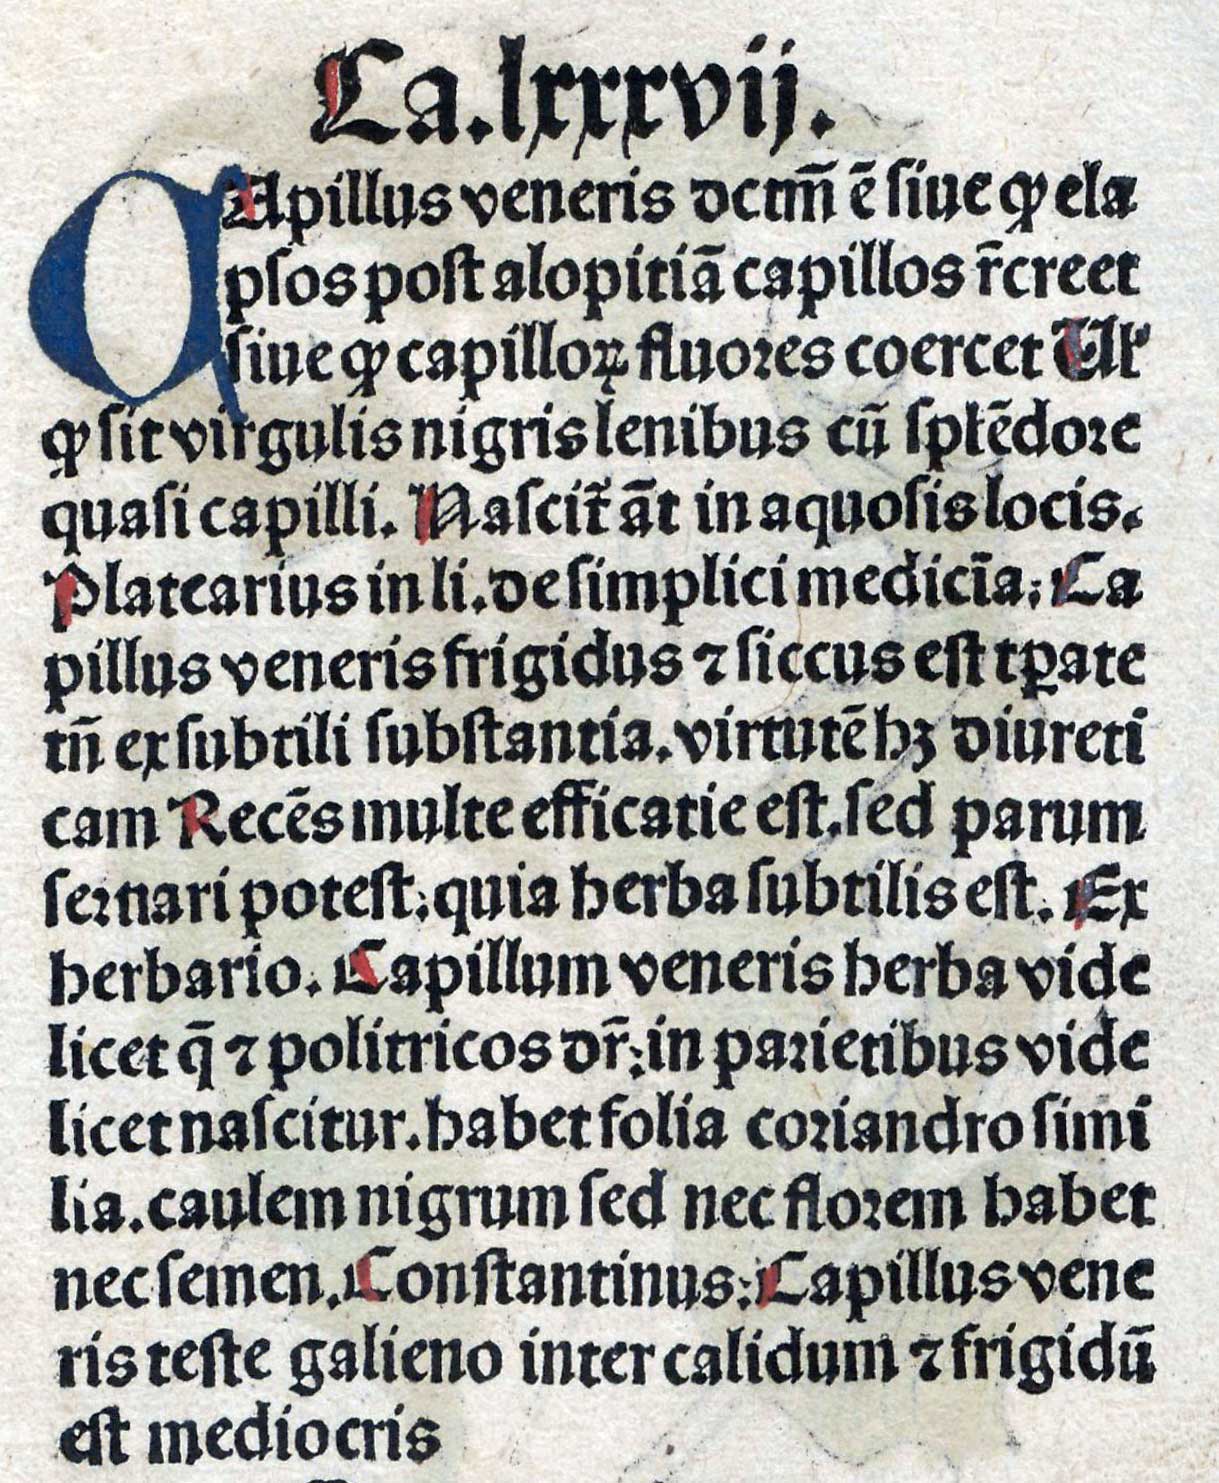 Ca.lxxxvij.
CApillus veneris dctm̄ ē siue ꝙ ela
psos post alopitiā capillos r̄creet
siue ꝙ capilloꝝ fluores coercet Ul᷑
ꝙ sit virgulis nigris lenibus cū splēdore
quasi capilli. Nascit᷑ āt in aquosis locis.
Platearius in li. de simplici medicīa: Ca
pillus veneris frigidus ⁊ siccus est tꝑate
tn̄ ex subtili substantia. virtutē hꝫ diureti
cam Recēs multe efficatie est. sed parum
seruari potest: quia herba subtilis est. Ex
herbario. Capillum veneris herba vide
licet q̄ ⁊ politricos dr̄: in parietibus vide
licet nascitur. habet folia coriandro simi
lia. caulem nigrum sed nec florem habet
nec semen. Constantinus: Capillus vene
ris teste galieno inter calidum ⁊ frigidū
est mediocris